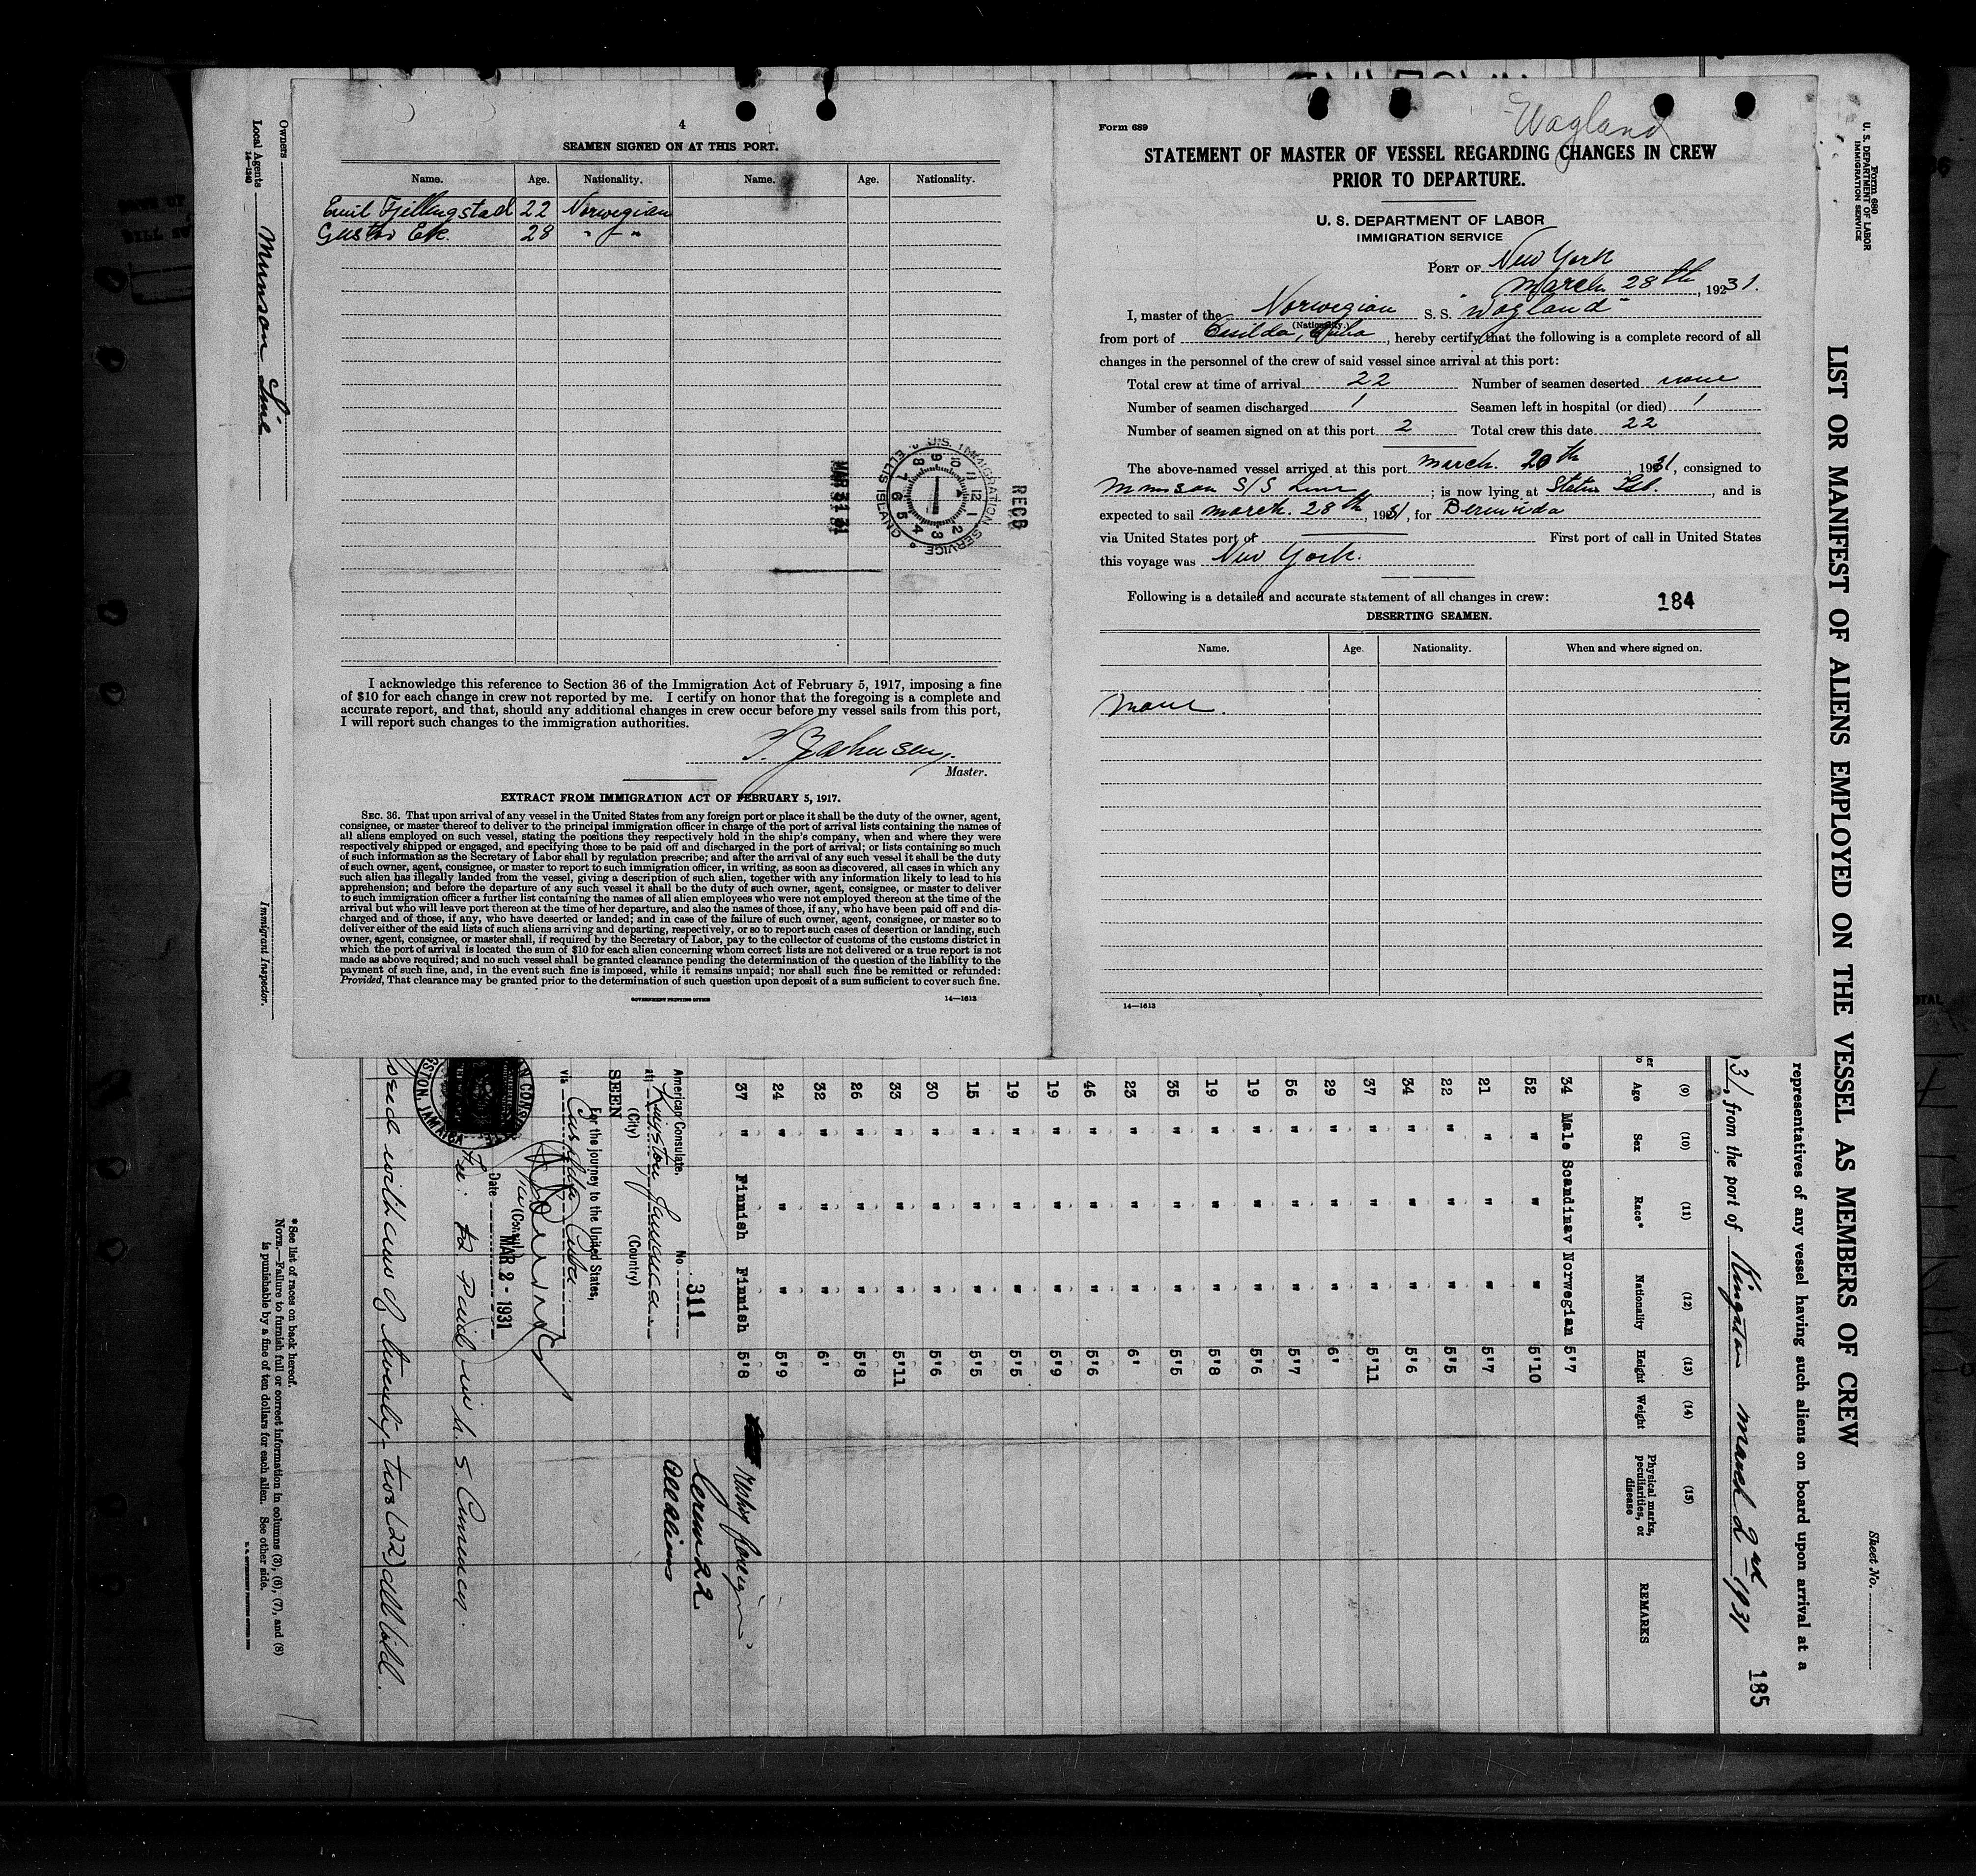 4
SEAMEN SIGNED ON AT THIS PORT.
Name. Age. Nationality. Name. Age. Nationality.
Emil Fjellingstad 22 Norwegian
Gustav Ek. 28 " - "
REC'D
MAR 31 31
U.S. IMMIGRATION SERVICE ELLIS ISLAND
I acknowledge this reference to Section 36 of the Immigration Act of February 5, 1917, imposing a fine
of $10 for each change in crew not reported by me. I certify on honor that the foregoing is a complete and
accurate report, and that, should any additional changes in crew occur before my vessel sails from this port,
I will report such changes to the immigration authorities.
Master.
EXTRACT FROM IMMIGRATION ACT OF FEBRUARY 5, 1917.
SEC. 36. That upon arrival of any vessel in the United States from any foreign port or place it shall be the duty of the owner, agent,
consignee, or master thereof to deliver to the principal immigration officer in charge of the port of arrival lists containing the names of
all aliens employed on such vessel, stating the positions they respectively hold in the ship's company, when and where they were
respectively shipped or engaged, and specifying those to be paid off and discharged in the port of arrival; or lists containing so much
of such information as the Secretary of Labor shall by regulation prescribe; and after the arrival of any such vessel it shall be the duty
of such owner, agent, consignee, or master to report to such immigration officer, in writing, as soon as discovered, all cases in which any
such alien has illegally landed from the vessel, giving a description of such alien, together with any information likely to lead to his
apprehension; and before the departure of any such vessel it shall be the duty of such owner, agent, consignee, or master to deliver
to such immigration officer a further list containing the names of all alien employees who were not employed thereon at the time of the
arrival but who will leave port thereon at the time of her departure, and also the names of those, if any, who have been paid off and dis-
charged and of those, if any, who have deserted or landed; and in case of the failure of such owner, agent, consignee, or master so to
deliver either of the said lists of such aliens arriving and departing, respectively, or so to report such cases of desertion or landing, such
owner, agent, consignee, or master shall, if required by the Secretary of Labor, pay to the collector of customs of the customs district in
which the port of arrival is located the sum of $10 for each alien concerning whom correct lists are not delivered or a true report is not
made as above required; and no such vessel shall be granted clearance pending the determination of the question of the liability to the
payment of such fine, and, in the event such fine is imposed, while it remains unpaid; nor shall such fine be remitted or refunded:
Provided, That clearance may be granted prior to the determination of such question upon deposit of a sum sufficient to cover such fine.
GOVERNMENT PRINTING OFFICE 14—1613
Wagland
Form 689
STATEMENT OF MASTER OF VESSEL REGARDING CHANGES IN CREW
PRIOR TO DEPARTURE.
U. S. DEPARTMENT OF LABOR
IMMIGRATION SERVICE
PORT OF New York
March 28th, 1931.
I, master of the Norwegian S. S. "Wagland"
(Nationality.)
from port of Casilda, Cuba, hereby certify that the following is a complete record of all
changes in the personnel of the crew of said vessel since arrival at this port:
Total crew at time of arrival 22 Number of seamen deserted none
Number of seamen discharged 1 Seamen left in hospital (or died) 1
Number of seamen signed on at this port 2 Total crew this date 22
The above-named vessel arrived at this port March. 20th, 1931, consigned to
Munson S/S Line; is now lying at Staten Isl., and is
expected to sail march. 28th, 1931, for Bermuda
via United States port of First port of call in United States
this voyage was New York.
Following is a detailed and accurate statement of all changes in crew:
184
DESERTING SEAMEN.
Name. Age. Nationality. When and where signed on.
None.
14—1613
Form 680
U. S. DEPARTMENT OF LABOR
IMMIGRATION SERVICE
Sheet No.
LIST OR MANIFEST OF ALIENS EMPLOYED ON THE VESSEL AS MEMBERS OF CREW
representatives of any vessel having such aliens on board upon arrival at a
31, from the port of Kingston March 2nd 1931
185
(9) (10) (11) (12) (13) (14) (15)
Age Sex Race* Nationality Height Weight Physical marks, peculiarities, or disease REMARKS
34 Male Scandinav Norwegian 5'7
52 " " " 5'10
21 " " " 5'7
22 " " " 5'5
34 " " " 5'6
37 " " " 5'11
29 " " " 6'
56 " " " 5'7
19 " " " 5'6
19 " " " 5'8
35 " " " 5'5
23 " " " 6'
46 " " " 5'6
19 " " " 5'9
19 " " " 5'5
15 " " " 5'5
30 " " " 5'6
33 " " " 5'11
26 " " " 5'8
32 " " " 6'
24 " " " 5'9
37 " Finnish Finnish 5'8
American Consulate. No. 311
at Kingston Jamaica
(City) (Country)
SEEN
For the journey to the United States,
via Casilda Cuba
(Consul)
Date MAR 2 - 1931
KINGSTON, JAMAICA
all aliens
Fee: paid in U. S. Currency.
with crew of twenty-two (22) all told.
*See list of races on back hereof.
NOTE.—Failure to furnish full or correct information in columns (3), (6), (7), and (8)
is punishable by a fine of ten dollars for each alien. See other side.
Owners
Local Agents Munson Line
14—1240
Immigrant Inspector.